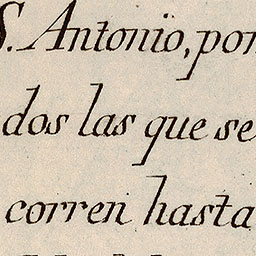 S. Antonio, pon
dos las que se
corren hasta